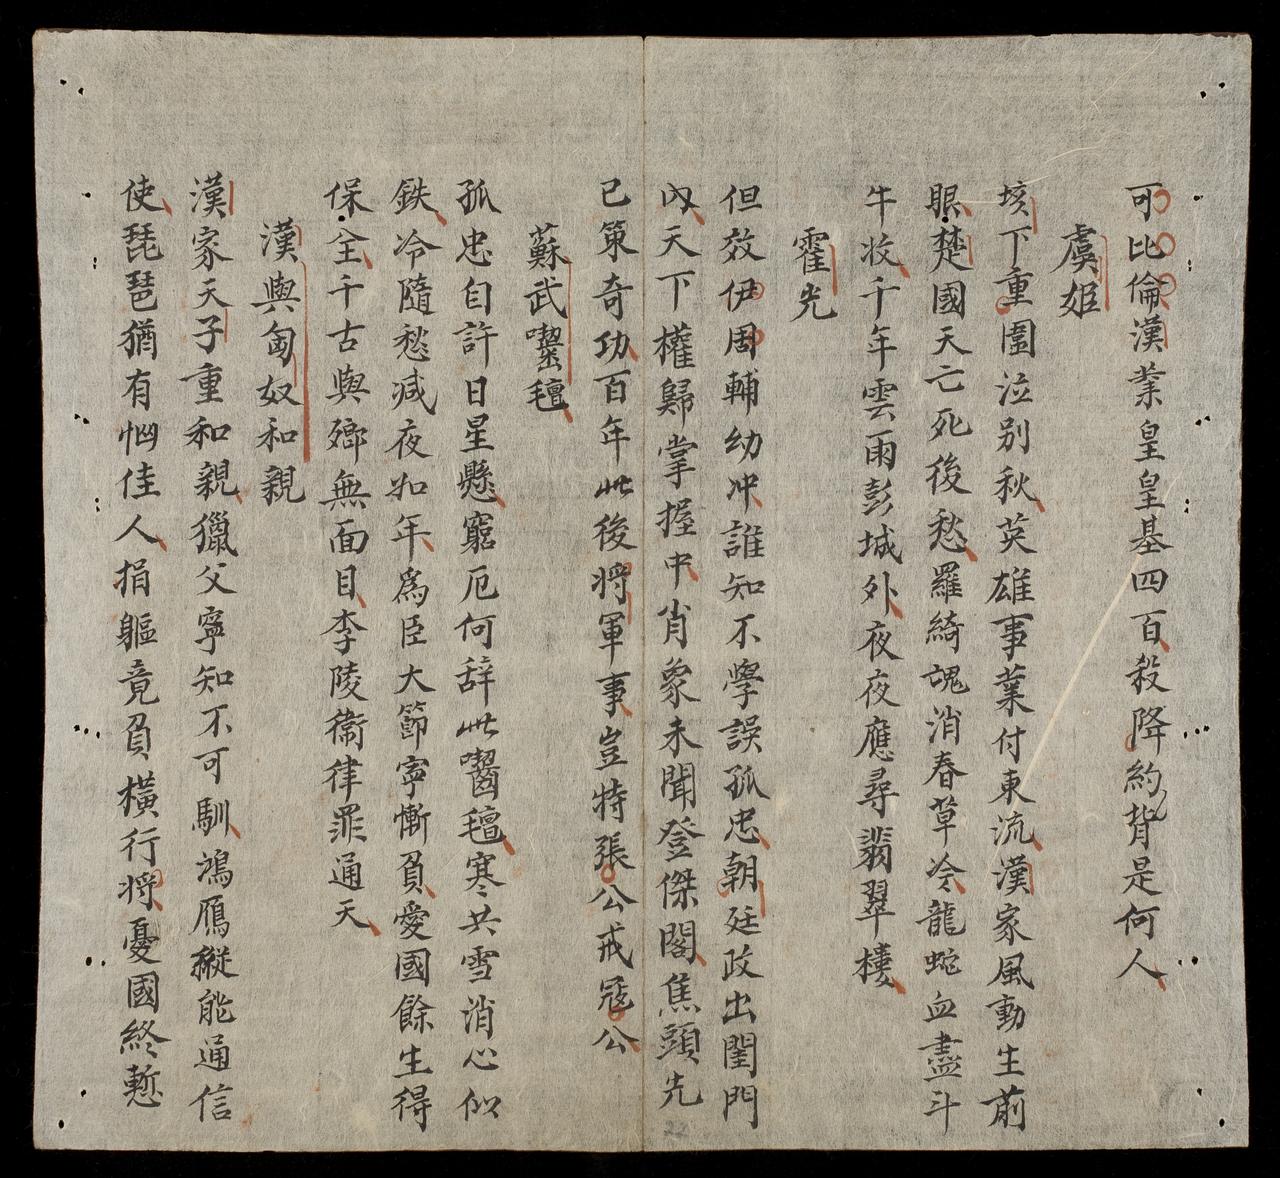 可比倫漢業皇皇基四百殺降約背是何人
虞姬
垓下重圍泣別秋英雄事業付東流漢家風動生前
眼楚國天亡死後愁羅綺魂消春草冷龍蛇血盡斗
牛收千年雲雨彭城外夜夜應尋翡翠樓
霍光
但效伊周輔幼冲誰知不學誤孤忠朝廷政出閨門
內天下權歸掌握中肖象未聞登傑閣焦頭先
已策奇功百年此後將軍事豈特張公戒寇公
蘇武嚙氊
孤忠自許日星懸窮厄何辞此嚙氊寒共雪消心似
鉄冷隨愁减夜如年為臣大節寧慚負愛國餘生得
保全千古與鄉無面目李陵衞律罪通天
漢與匈奴和親
漢家天子重和親獵父寧知不可馴鴻鴈縱能通信
使琵琶猶有惱佳人捐軀竟負橫行將憂國終慙